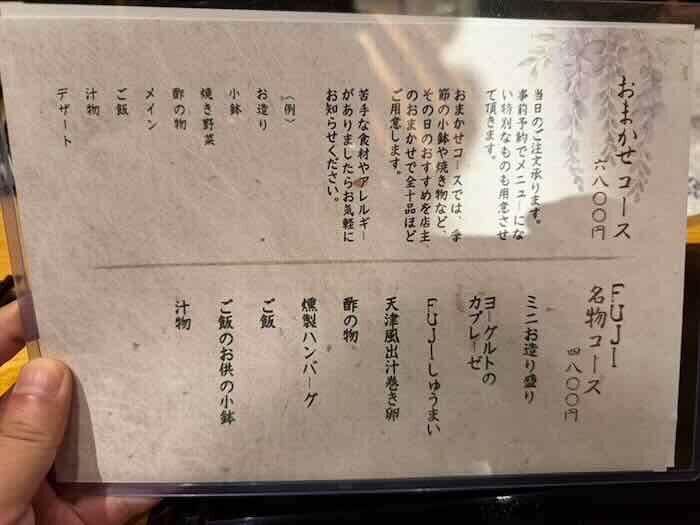 おまかせコース
六八〇〇円
当日のご注文承ります。
事前予約でメニューにな
い特別なものも用意させ
て頂きます。
おまかせコースでは、季
節の小鉢や焼き物など、
その日のおすすめを店主
のおまかせで全十品ほど
ご用意します。
苦手な食材やアレルギー
がありましたらお気軽に
お知らせください。
〈例〉
お造り
小鉢
焼き野菜
酢の物
メイン
ご飯
汁物
デザート
FUJI
名物コース
四八〇〇円
ミニお造り盛り
ヨーグルトの
カプレーゼ
FUJIしゅうまい
天津風出汁巻き卵
酢の物
燻製ハンバーグ
ご飯
ご飯のお供の小鉢
汁物